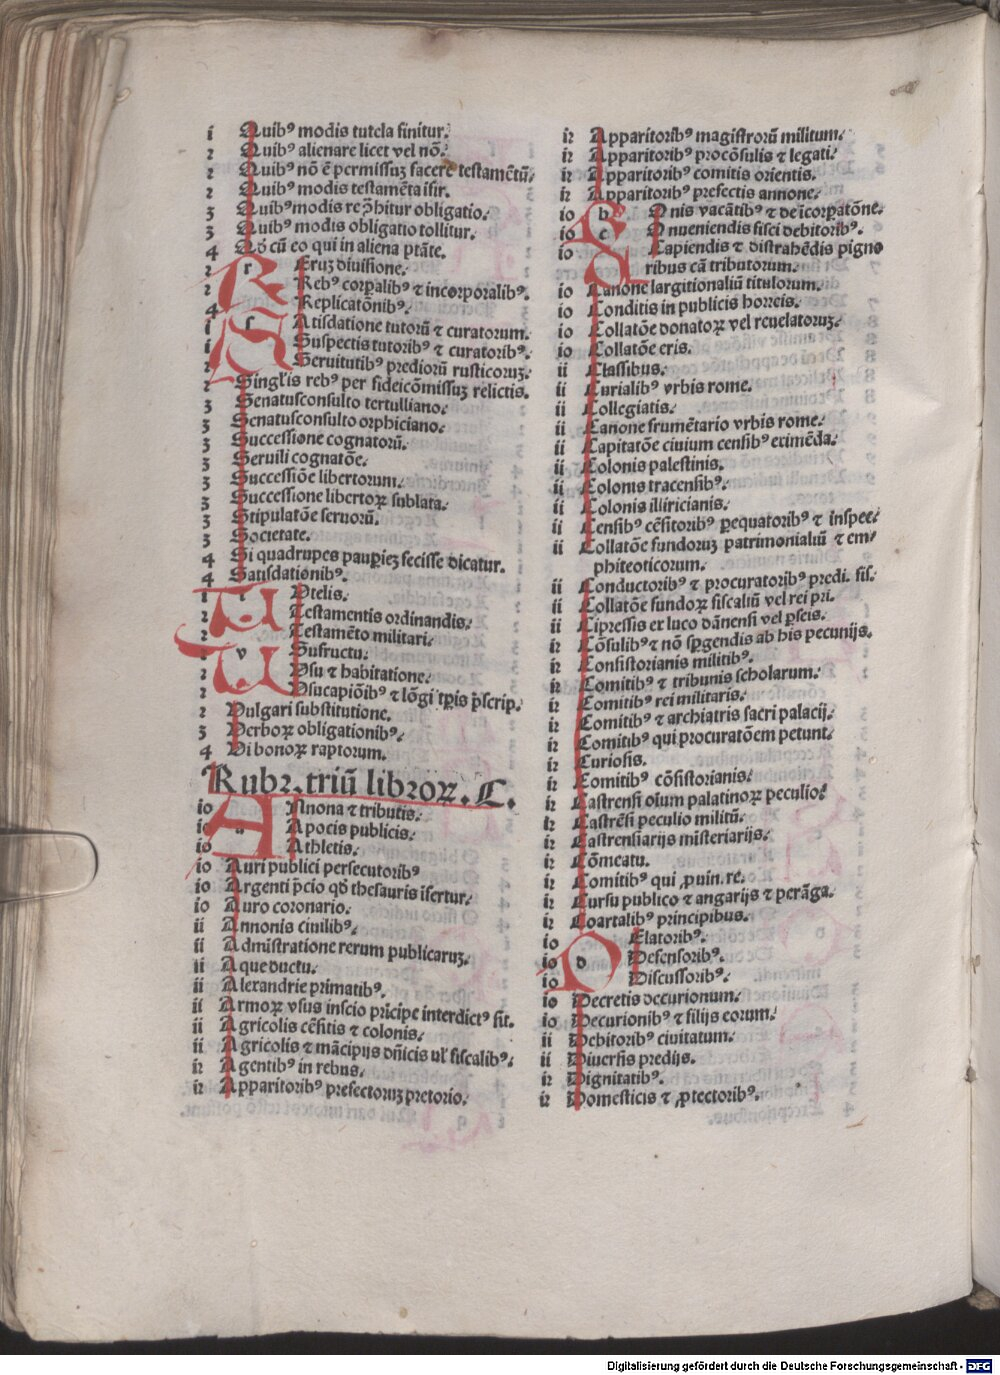 i Quibꝰ modis tutela finitur.
2 Quibꝰ alienare licet vel nō.
2 Quibꝰ nō ē permissuꝫ facere testamētū.
2 Quibꝰ modis testamēta īfir.
3 Quibꝰ modis re ꝯhitur obligatio.
3 Quibꝰ modis obligatio tollitur.
4 Qō cū eo qui in aliena ptāte.
2 r Eruꝫ diuisione.
2 Rebꝰ corpalibꝰ ⁊ incorporalibꝰ.
4 Replicatōnibꝰ.
i s Atisdatione tutorū ⁊ curatorum.
i Suspectis tutoribꝰ ⁊ curatoribꝰ.
2 Seruitutibꝰ prediorū rusticoruꝫ.
2 Singl'is rebꝰ per fideicōmissuꝫ relictis.
3 Senatusconsulto tertulliano.
3 Senatusconsulto orphiciano.
3 Successione cognatorū.
3 Seruili cognatōe.
3 Successiōe libertorum.
3 Successione libertoꝝ sublata.
3 Stipulatōe seruorū.
3 Societate.
4 Si quadrupes paupieꝫ fecisse dicatur.
4 Satisdationibꝰ.
i t Vtelis.
2 Testamentis ordinandis.
2 Testamēto militari.
2 v Susructu.
2 Vsu ⁊ habitatione.
2 Vsucapiōibꝰ ⁊ lōgi tp̄is p̄scrip.
2 Vulgari substitutione.
3 Verboꝝ obligationibꝰ.
4 Vi bonoꝝ raptorum.
Rubꝛ. triū libꝛoꝝ. C.
io Annona ⁊ tributis.
io a Apocis publicis.
io Athletis.
io Auri publici persecutoribꝰ
io Argenti p̄cio qō thesauris īfertur.
io Auro coronario.
ii Annonis ciuilibꝰ.
ii Admīstratione rerum publicaruꝫ.
ii Aqueductu.
ii Alexandrie primatibꝰ.
ii Armoꝝ vsus inscio pricipe interdictꝰ sit.
ii Agricolis cēsitis ⁊ colonis.
ii Agricolis ⁊ mācipijs dn̄icis ul' fiscalibꝰ.
i2 Agentibꝰ in rebus.
i2 Apparitoribꝰ prefectoruꝫ pretorio.
i2 Apparitoribꝰ magistrorū militum.
i2 Apparitoribꝰ procōsulis ⁊ legati.
i2 Apparitoribꝰ comitis orientis.
i2 Apparitoribꝰ prefectis annone.
io b Onis vacātibꝰ ⁊ de īcorpatōne.
io c Onueniendis fisci debitoribꝰ.
io Capiendis ⁊ distrahēdis pigno
ribus cā tributorum.
io Canone largitionaliū titulorum.
io Conditis in publicis horreis.
io Collatōe donatoꝝ vel reuelatoruꝫ.
io Collatōe eris.
ii Classibus.
ii Curialibꝰ vrbis rome.
ii Collegiatis.
ii Canone frumētario vrbis rome.
ii Capitatōe ciuium censibꝰ eximēda.
ii Colonis palestinis.
ii Colonis tracensibꝰ.
ii Colonis illiricianis.
ii Censibꝰ cēsitoribꝰ ꝑequatoribꝰ ⁊ inspec.
ii Collatōe fundoruꝫ patrimonialiū ⁊ em/
phiteoticorum.
ii Conductoribꝰ ⁊ procuratoribꝰ predi. fis.
ii Collatōe fundoꝝ fiscaliū vel rei pri.
ii Cipressis ex luco dānensi vel ꝑseis.
i2 Cōsulibꝰ ⁊ nō spgendis ab his pecunijs.
i2 Consistorianis militibꝰ.
i2 Comitibꝰ ⁊ tribunis scholarum.
i2 Comitibꝰ rei militaris.
i2 Comitibꝰ ⁊ archiatris sacri palacij.
i2 Comitibꝰ qui procuratōem petunt.
i2 Curiosis.
i2 Comitibꝰ cōsistorianis.
i2 Castrensi oīum palatinoꝝ peculio.
i2 Castrēsi peculio militū.
i2 Castrensiarijs misteriarijs.
i2 Cōmeatu.
i2 Comitibꝰ qui ꝓuin. re.
i2 Cursu publico ⁊ angarijs ⁊ perāga.
i2 Coartalibꝰ principibus.
io Elatoribꝰ.
io d Defensoribꝰ.
io Discussoribꝰ.
io Decretis decurionum.
io Decurionibꝰ ⁊ filijs eorum.
ii Debitoribꝰ ciuitatum.
ii Diuersis predijs.
i2 Dignitatibꝰ.
i2 Domesticis ⁊ ꝓtectoribꝰ.
Digitalisierung gefördert durch die Deutsche Forschungsgemeinschaft - DFG